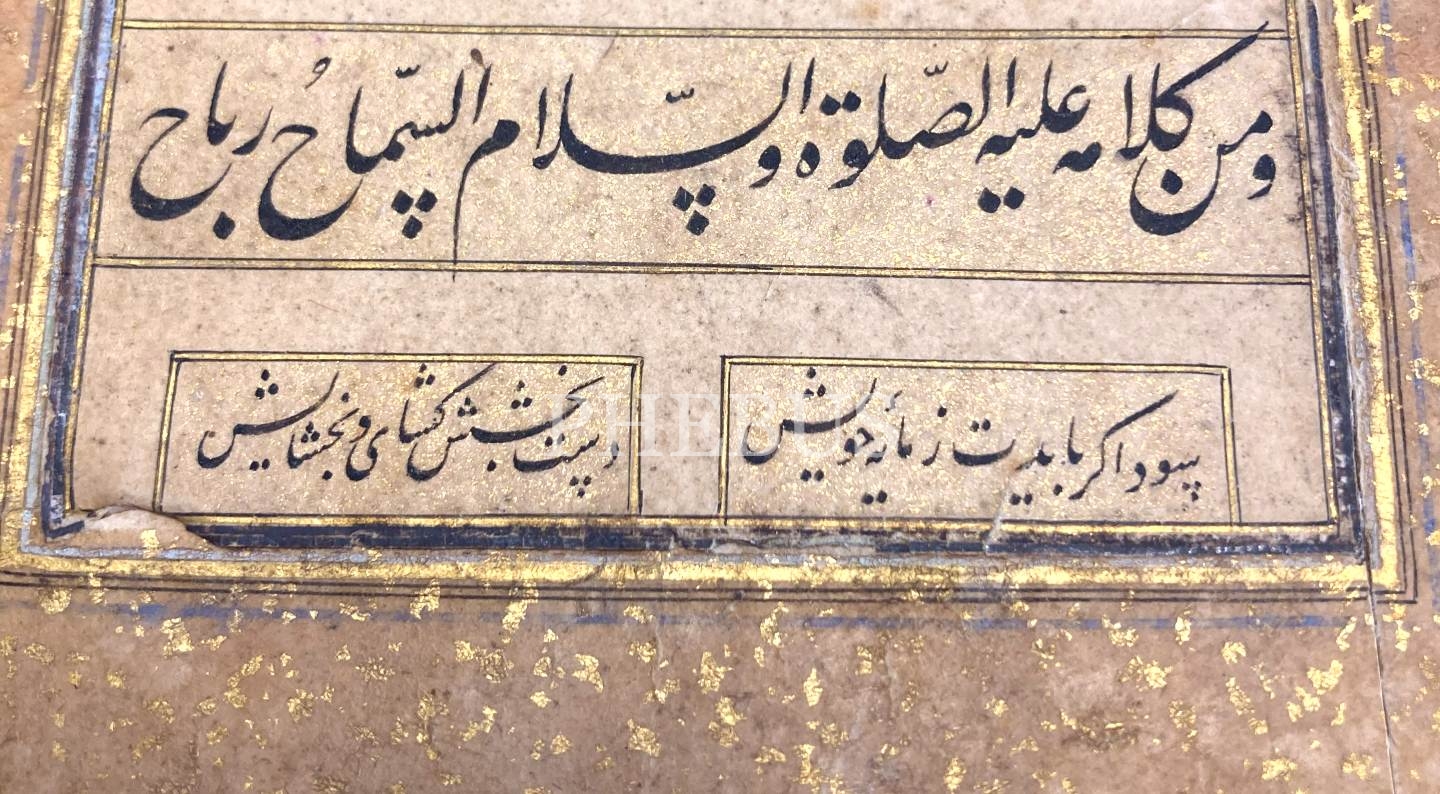 ومن كلامه عليه الصلوة والسّلام السّماحُ رباح
سود اكر بايدت ز مايه خويش
دست بخشش كشاى و بخشايش
PHEBUS